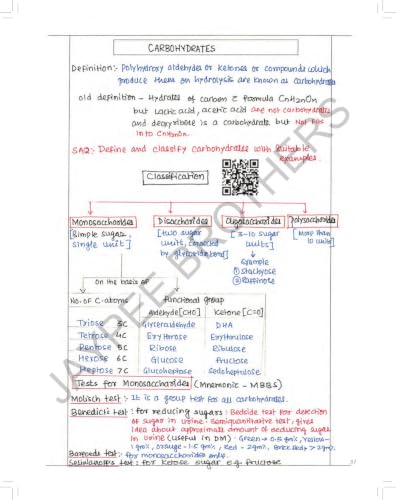 CARBOHYDRATES
Definition:- Polyhydroxy aldehydes or ketones or compounds which
produce them on hydrolysis are known as carbohydrates
old definition - Hydrates of carbon c̄ formula CnH2nOn
but Lactic acid, acetic acid are not carbohydrates
and deoxyribose is a carbohydrate but Not fits
into CnH2nOn.
SAQ:- Define and classify carbohydrates with suitable
examples
Classification
Monosaccharides Disaccharides Oligosaccharides Polysaccharides
[Simple sugar, [two sugar [3-10 sugar [More than
single unit] units, connected units] 10 units]
by glycosidic bond]
Example
① Stachyose
② Raffinose
On the basis of
No. of C-atoms functional group
Aldehyde [CHO] Ketone [C=O]
Triose 3C Glyceraldehyde DHA
Tetrose 4C Erythrose Erythrulose
Pentose 5C Ribose Ribulose
Hexose 6C Glucose fructose
Heptose 7C Glucoheptose Sedoheptulose
Tests for Monosaccharides (Mnemonic - MBBS)
Molisch test :- It is a group test for all carbohydrates.
Benedict test : for reducing sugars : Bedside test for detection
of sugar in urine. Semiquantitative test, gives
idea about approximate amount of reducing sugar
in urine (useful in DM). Green → 0.5 gm%, Yellow-
1 gm%, orange - 1.5 gm%, Red - 2gm%, Brick Red > 2gm%.
Barfoeds test : for monosaccharides only.
Seliwanoffs test : for ketose sugar e.g. fructose
JAYPEE BROTHERS